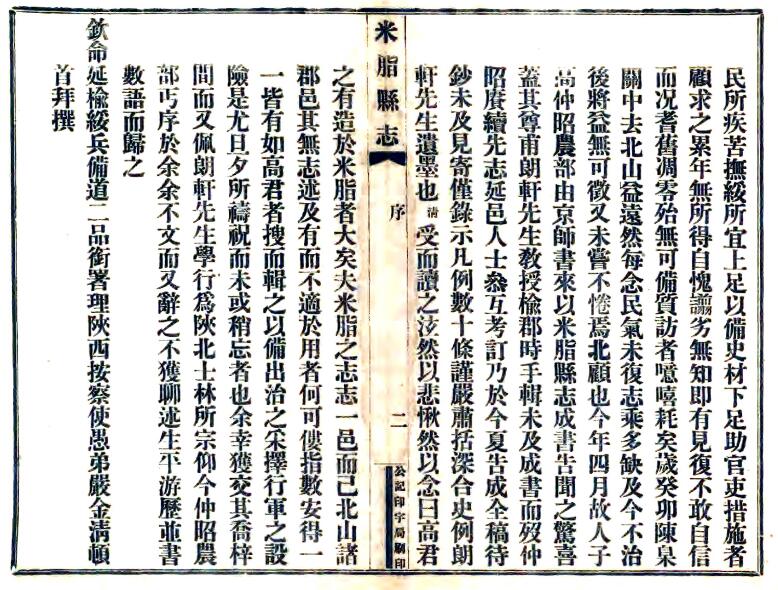 民所疾苦撫綏所宜上足以備史材下足助官吏措施者
顧求之累年無所得自愧謭劣無知即有見復不敢自信
而况耆舊凋零殆無可備質訪者噫嘻耗矣歲癸卯陳臬
關中去北山益遠然每念民氣未復志乘多缺及今不治
後將益無可徵又未嘗不惓焉北顧也今年四月故人子
高仲昭農部由京師書來以米脂縣志成書告聞之驚喜
蓋其尊甫朗軒先生教授榆郡時手輯未及成書而歿仲
昭賡續先志延邑人士叅互考訂乃於今夏告成全稿待
鈔未及見寄僅錄示凡例數十條謹嚴肅括深合史例朗
軒先生遺墨也清受而讀之泫然以悲愀然以念曰高君
米脂縣志
序
二
公記印字局刷印
之有造於米脂者大矣夫米脂之志志一邑而已北山諸
郡邑其無志述及有而不適於用者何可僂指數安得一
一皆有如高君者搜而輯之以備出治之采擇行軍之設
險是尤旦夕所禱祝而未或稍忘者也余幸獲交其喬梓
間而又佩朗軒先生學行爲陝北士林所宗仰今仲昭農
部丐序於余余不文而又辭之不獲聊述生平游歷並書
數語而歸之
欽命延榆綏兵備道二品銜署理陝西按察使愚弟嚴金清頓
首拜撰